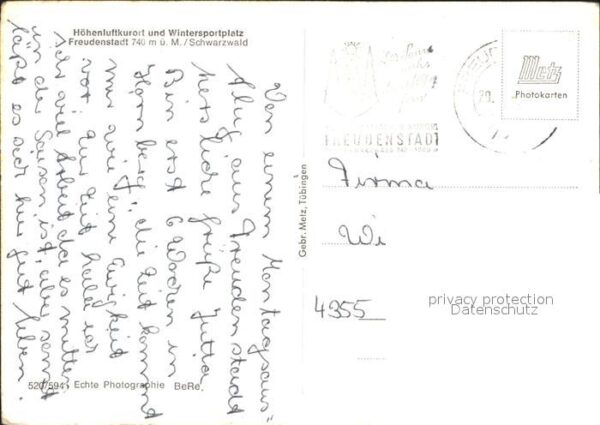 Höhenluftkurort und Wintersportplatz
Freudenstadt 740 m ü. M./Schwarzwald
Von einem Montagsaus"
flug aus Freudenstadt
herzliche Grüße Jutta
Bin erst 6 Wochen in
Hornberg, die Zeit kommt
mir wie eine Ewigkeit
vor. Zur Zeit habe
sehr viel Arbeit da es mitten
in der Saison ist, aber sonst
läßt es sich hier gut leben.
520/594 Echte Photographie BeRe.
Gebr. Metz, Tübingen
FREUDENSTADT
Metz
Photokarten
Firma
Wi
4355
privacy protection
Datenschutz